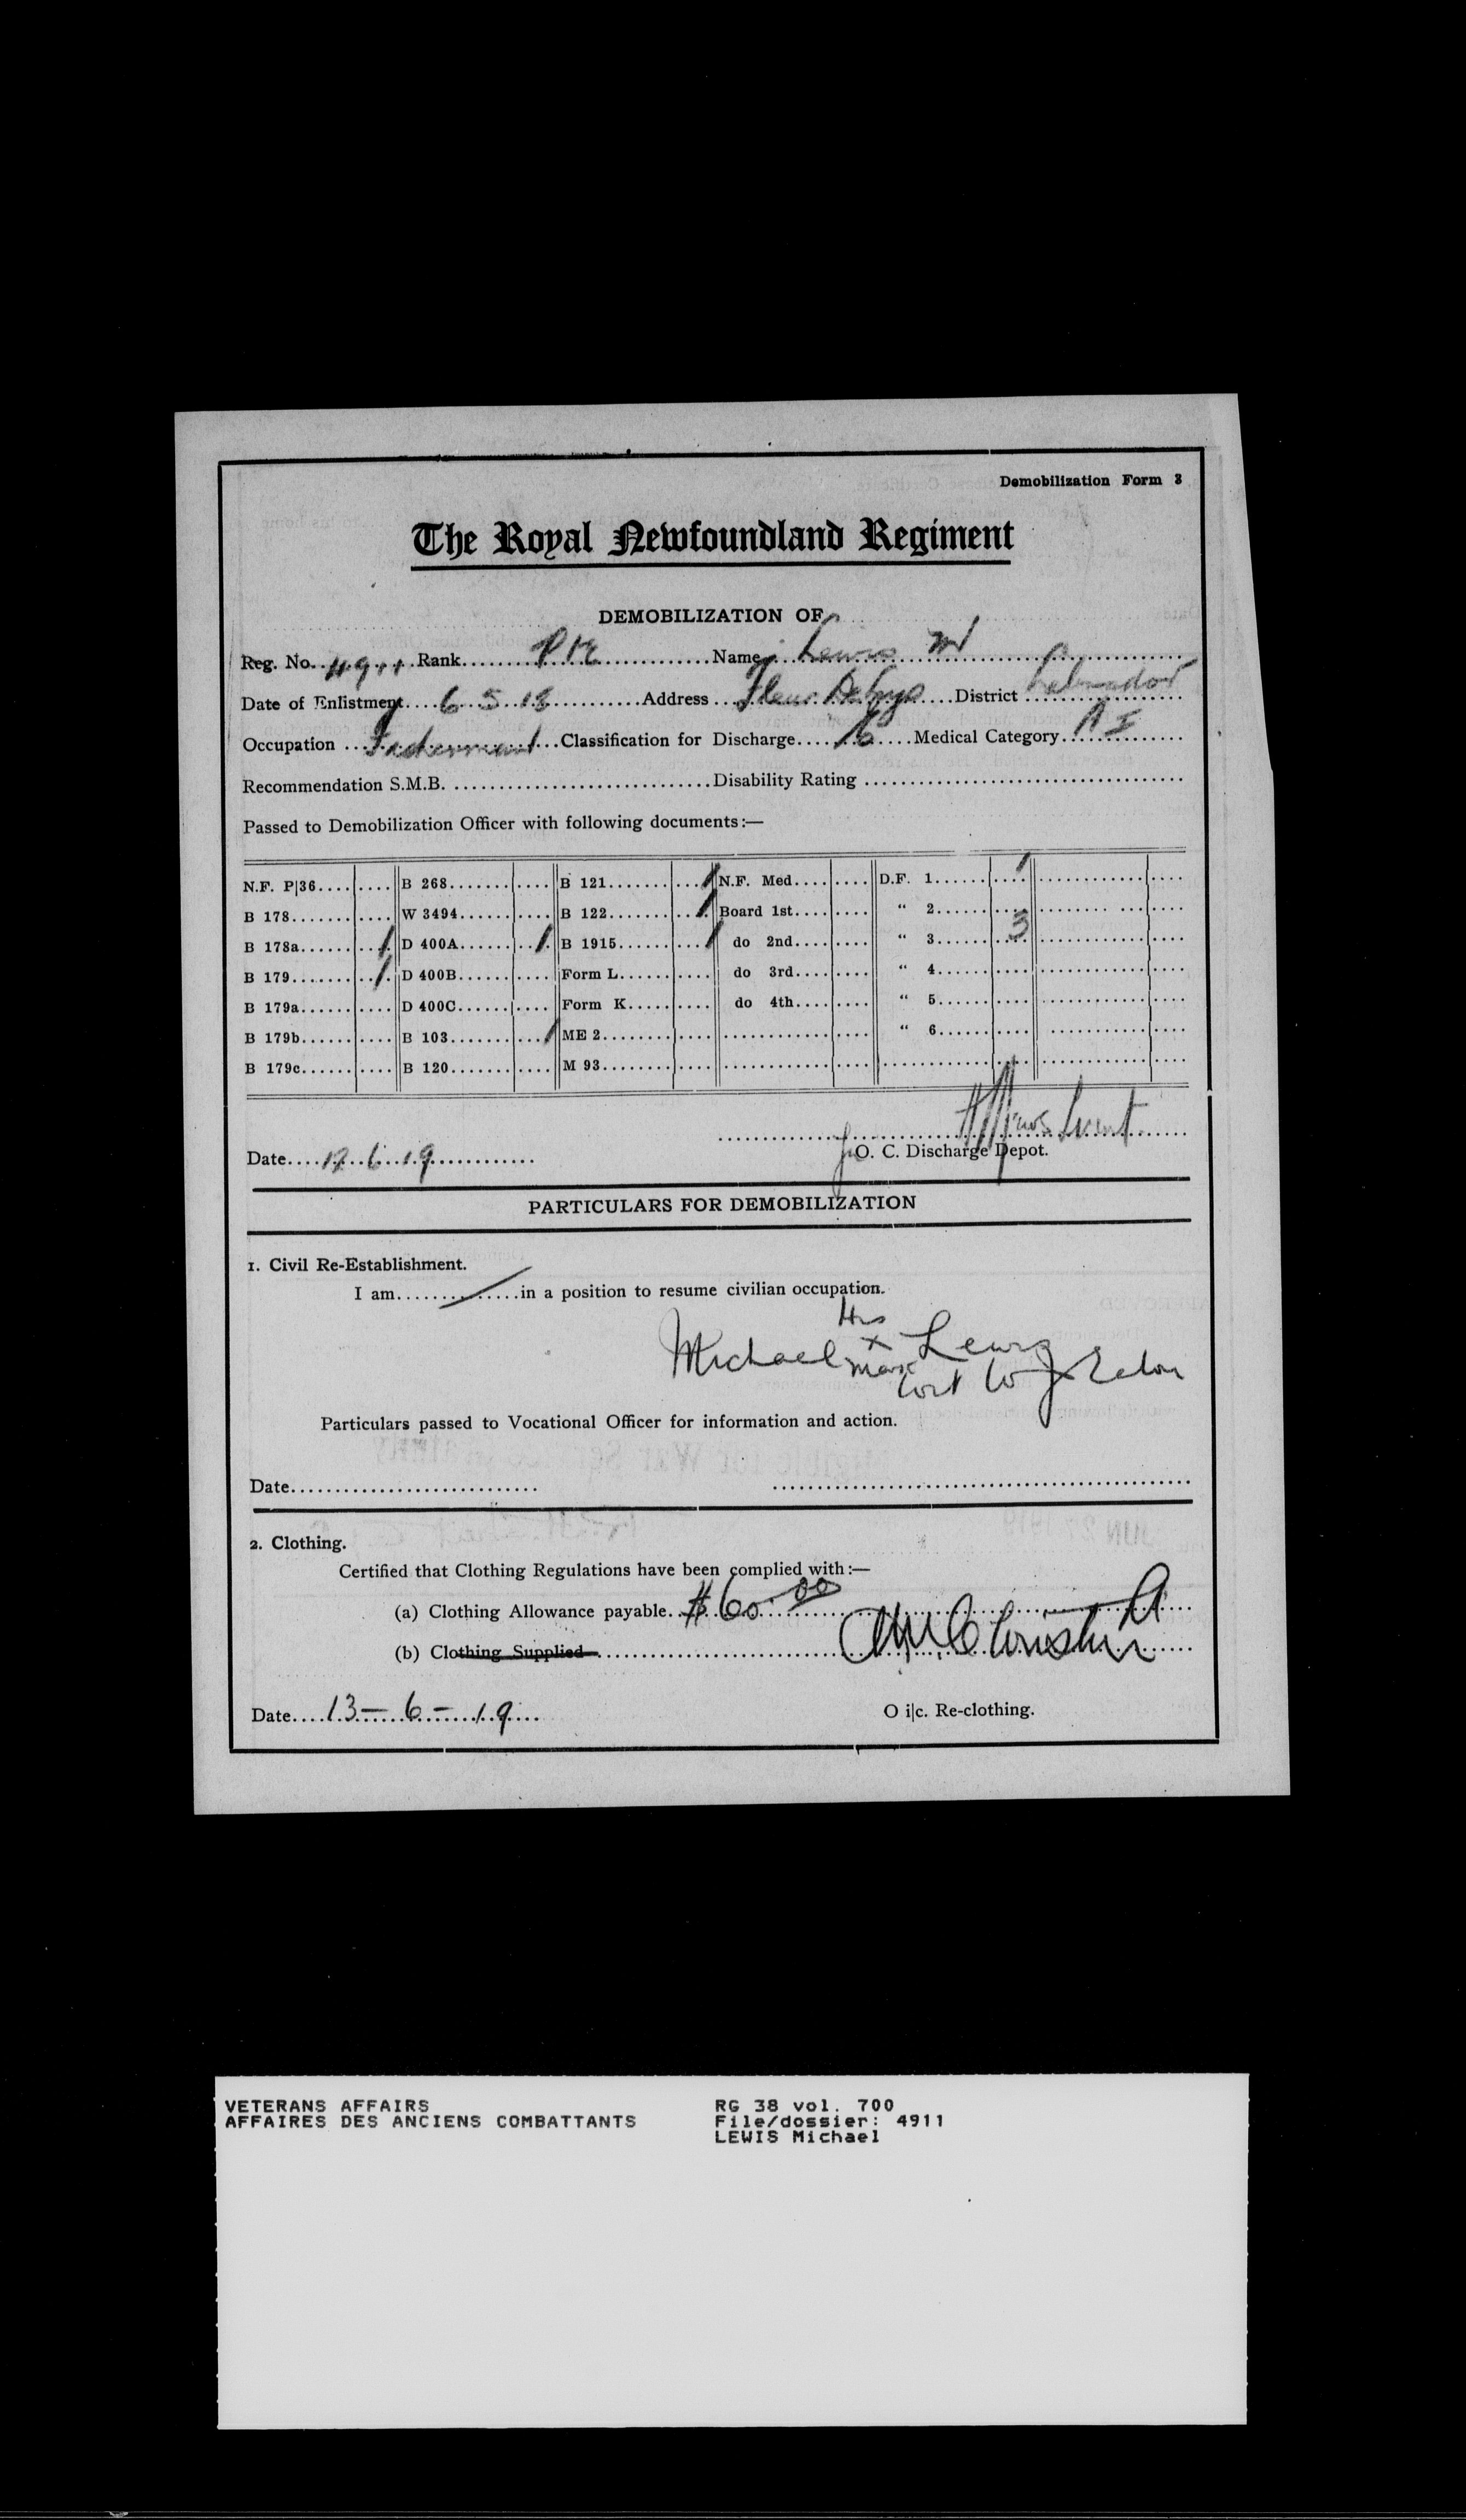 Demobilization Form 3
The Royal Newfoundland Regiment
DEMOBILIZATION OF
Reg. No. 4911 Rank Pte Name Lewis M
Date of Enlistment 6 5 18 Address Fleur De Lys District Labrador
Occupation Fisherman Classification for Discharge Medical Category A I
Recommendation S.M.B. Disability Rating
Passed to Demobilization Officer with following documents:—
N.F. P|36 B 268 B 121 / N.F. Med. D.F. 1 /
B 178 W 3494 B 122 / Board 1st " 2
B 178a / D 400A / B 1915 / do 2nd " 3 3
B 179 / D 400B Form L do 3rd " 4
B 179a D 400C Form K do 4th " 5
B 179b B 103 / ME 2 " 6
B 179c B 120 M 93
Date 12 6 19 O. C. Discharge Depot.
PARTICULARS FOR DEMOBILIZATION
1. Civil Re-Establishment.
I am in a position to resume civilian occupation.
His
Michael x Lewis
mark
Particulars passed to Vocational Officer for information and action.
Date
2. Clothing.
Certified that Clothing Regulations have been complied with:—
(a) Clothing Allowance payable $60.00
(b) Clothing Supplied
Date 13 – 6 – 19 O i|c. Re-clothing.
VETERANS AFFAIRS RG 38 vol. 700
AFFAIRES DES ANCIENS COMBATTANTS File/dossier: 4911
LEWIS Michael